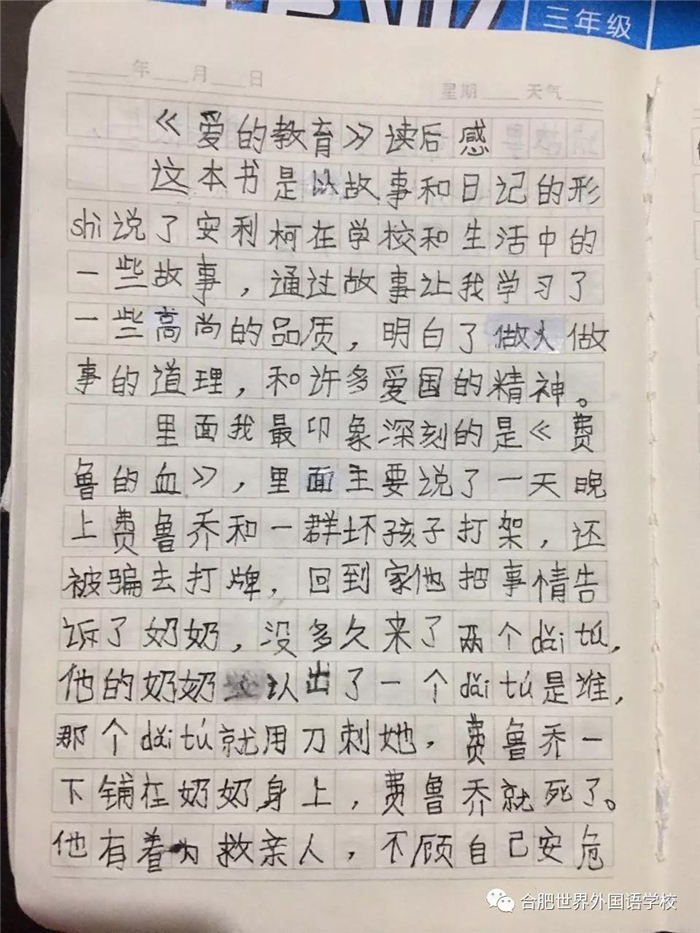 三年级
年 月 日
星期 天气
《爱的教育》读后感
这本书是以故事和日记的形
shi说了安利柯在学校和生活中的
一些故事，通过故事让我学习了
一些高尚的品质，明白了做人做
事的道理，和许多爱国的精神。
里面我最印象深刻的是《费
鲁的血》，里面主要说了一天晚
上费鲁乔和一群坏孩子打架，还
被骗去打牌，回到家他把事情告
诉了奶奶，没多久来了两个dǎi tú，
他的奶奶认出了一个dǎi tú是谁，
那个dǎi tú就用刀刺她，费鲁乔一
下铺在奶奶身上，费鲁乔就死了。
他有着为救亲人，不顾自己安危
合肥世界外国语学校